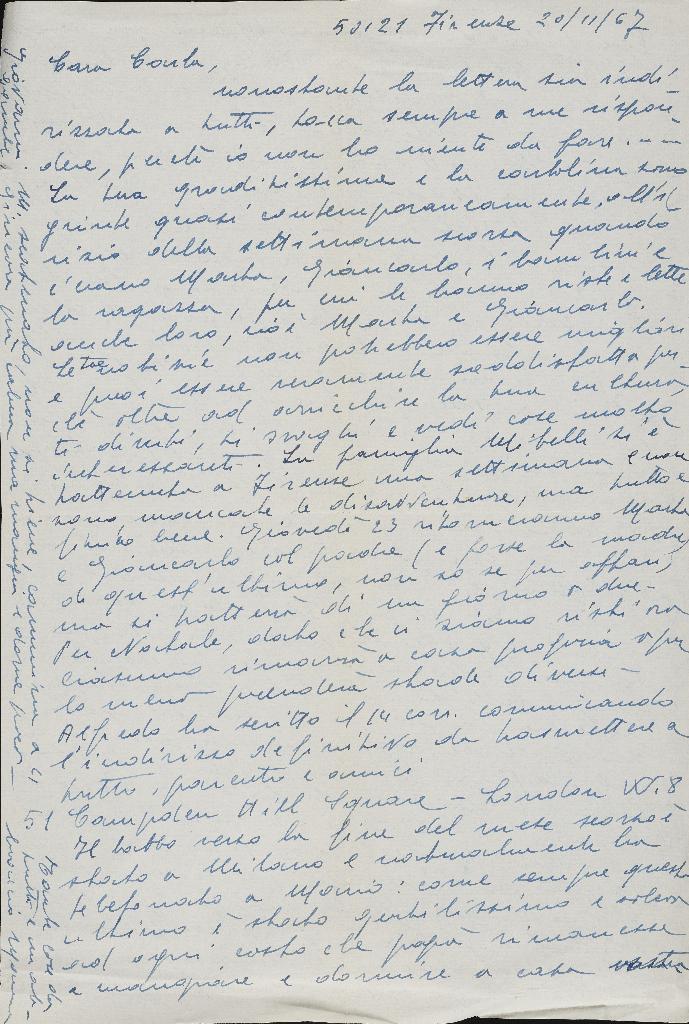 50121 Firenze 20/11/67
Cara Carla,
nonostante la lettera sia indi
rizzata a tutti, tocca sempre a me rispon
dere, perchè io non ho niente da fare. ---
La tua graditissima e la cartolina sono
giunte quasi contemporaneamente, all'i
nizio della settimana scorsa quando
c'erano Marta, Giancarlo, i bambini e
la ragazza, per cui le hanno viste e lette
anche loro, cioè Marta e Giancarlo.
Le tue notizie non potrebbero essere migliori
e puoi essere veramente soddisfatta per
chè oltre ad arricchire la tua cultura,
ti diverti, ti svaghi e vedi cose molto
interessanti. La famiglia Mibelli si è
trattenuta a Firenze una settimana e non
sono mancate le disavventure, ma tutto è
finito bene. Giovedì 23 ritorneranno Marta
e Giancarlo col padre (e forse la madre)
di quest'ultimo, non so se per affari,
ma si tratterà di un giorno o due.
Per Natale, dato che ci siamo visti ora
ciascuno rimarrà a casa propria o per
lo meno prenderà strade diverse -
Alfredo ha scritto il 14 corr. comunicando
l'indirizzo definitivo da trasmettere a
tutti, parenti e amici
Campden Hill Square - London W. 8
Il babbo verso la fine del mese scorso è
stato a Milano e naturalmente ha
telefonato a Mario: come sempre quest'
ultimo è stato gentilissimo e voleva
ad ogni costo che papà rimanesse
a mangiare e dormire a casa vostra
Giovanni sta
non si tiene, cammina a
tutti e un